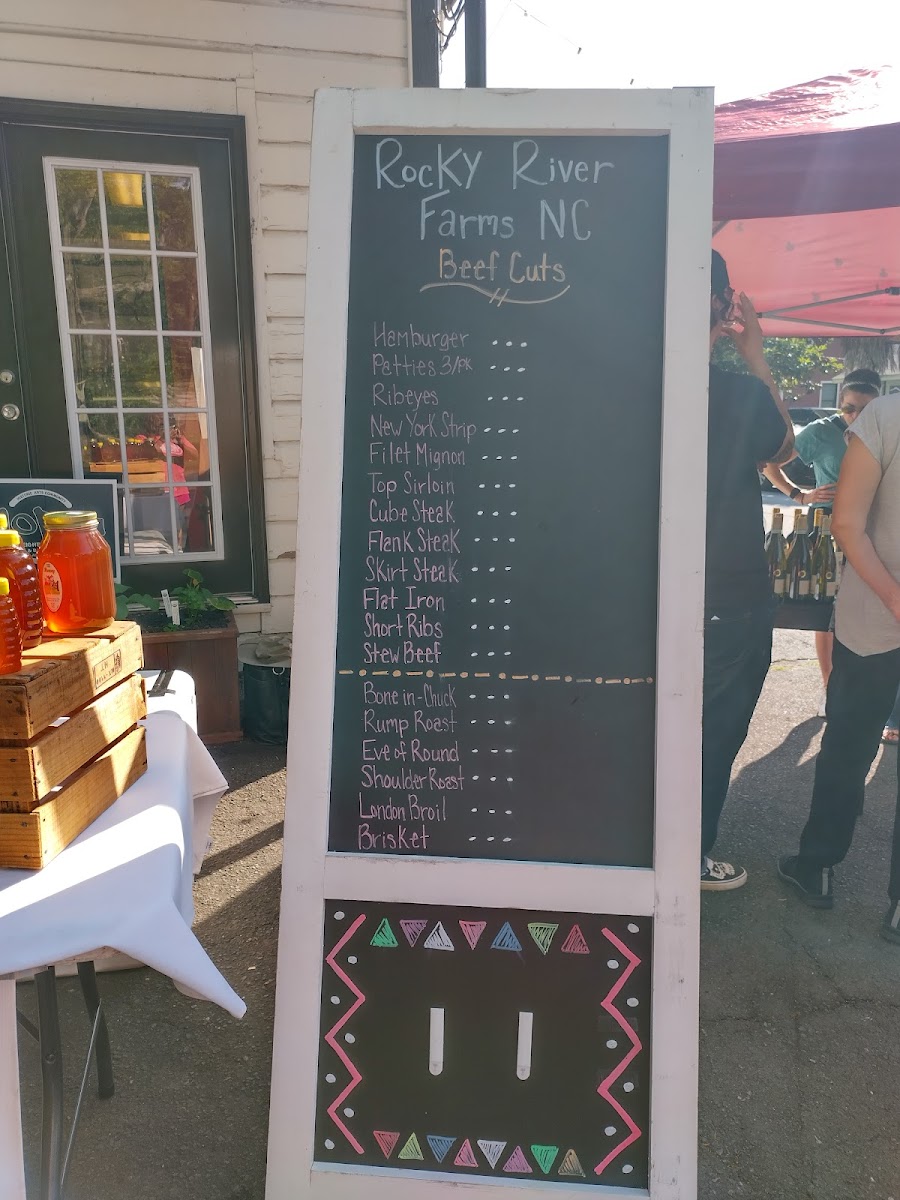 Rocky River
Farms NC
Beef Cuts
Hamburger ....
Patties 3/pk ...
Ribeyes ...
New York Strip ...
Filet Mignon ...
Top Sirloin ...
Cube Steak ...
Flank Steak ...
Skirt Steak ...
Flat Iron ...
Short Ribs ...
Stew Beef ...
Bone in-Chuck ...
Rump Roast ...
Eve of Round ...
Shoulder Roast ...
London Broil ...
Brisket ...